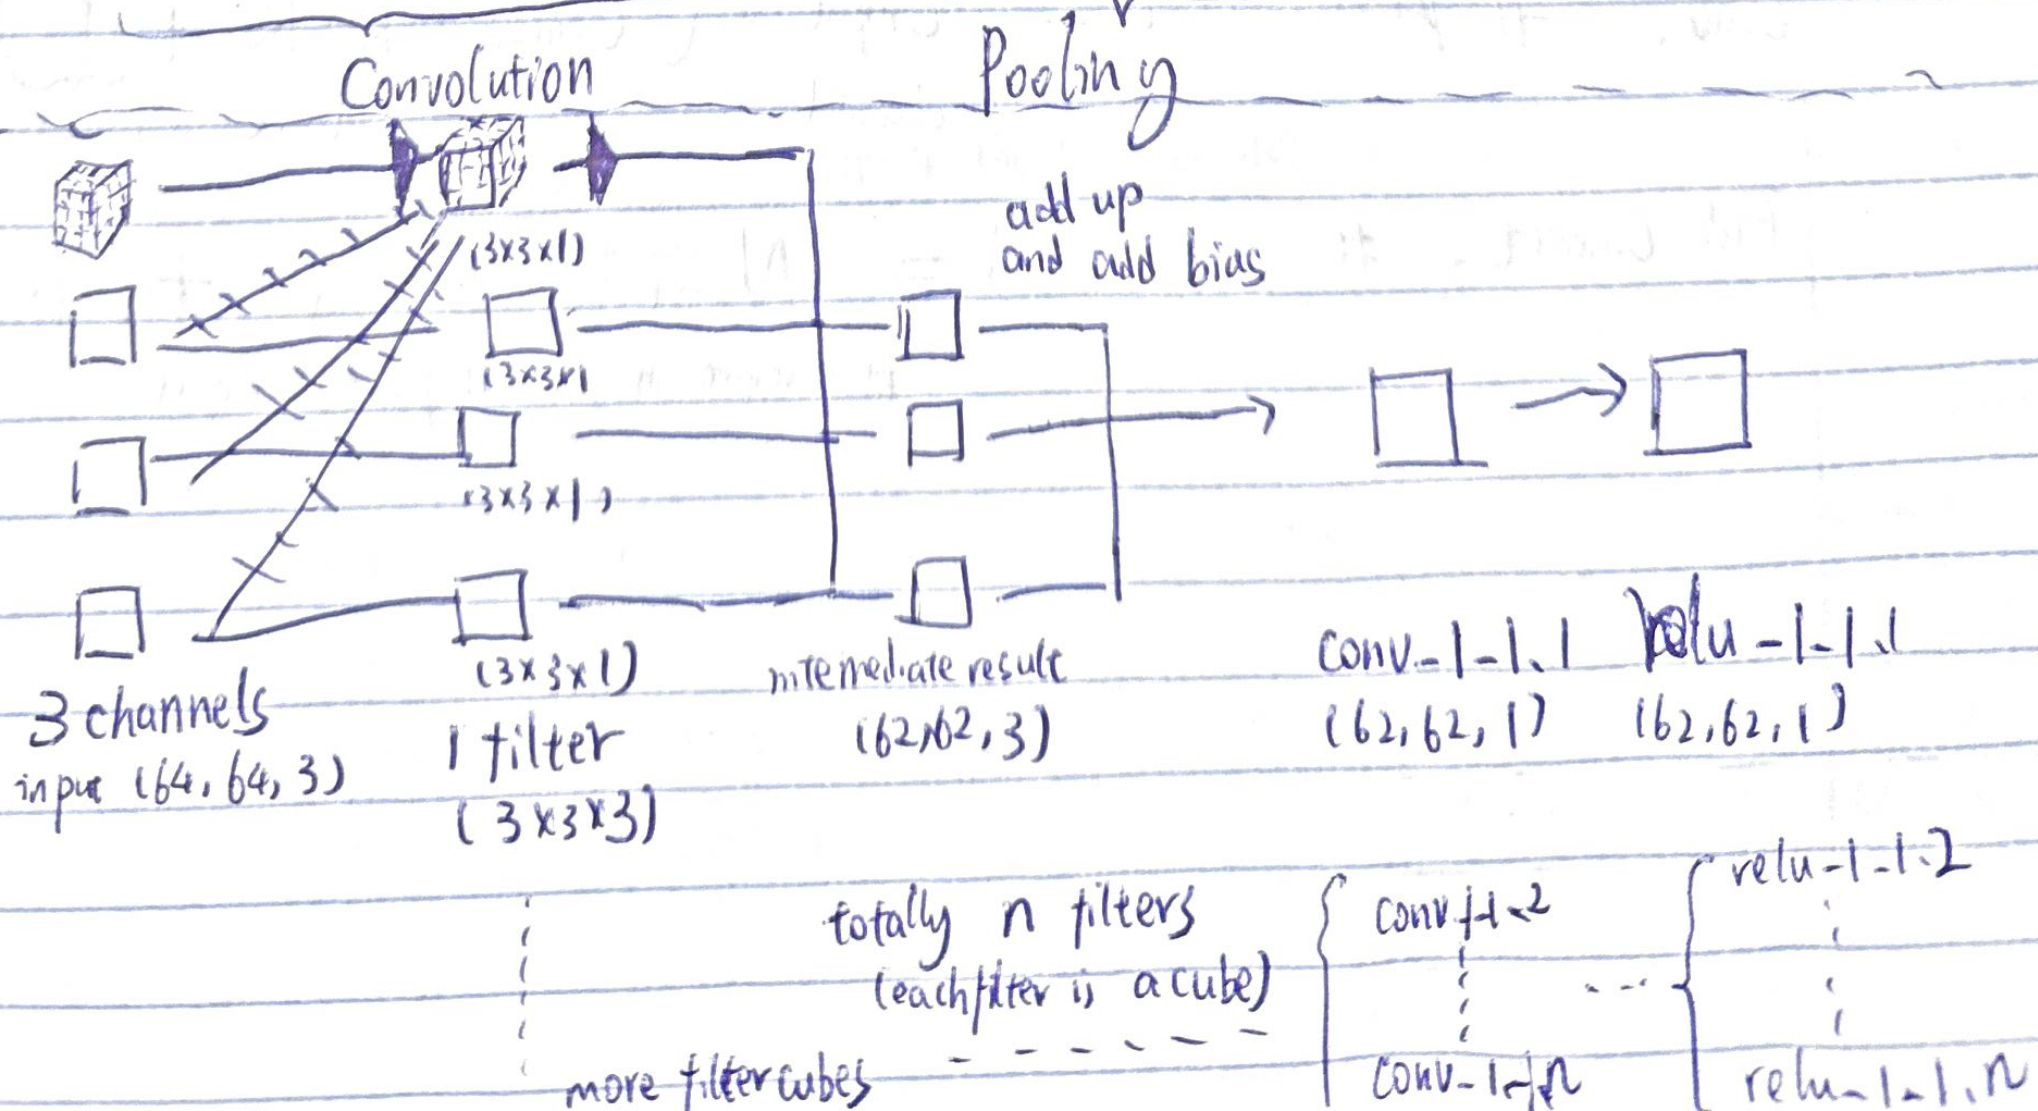 Convolution
Pooling
add up
and add bias
(3x3x1)
(3x3x1
(3x3x1)
(3x3x1)
3 channels
input (64, 64, 3)
1 filter
(3x3x3)
intemediate result
(62,62,3)
conv-1-1.1
(62,62,1)
relu-1-1.1
(62,62,1)
totally n filters
(each filter is a cube)
more filter cubes
conv-1-1.2
conv-1-1.n
relu-1-1.2
relu-1-1.n